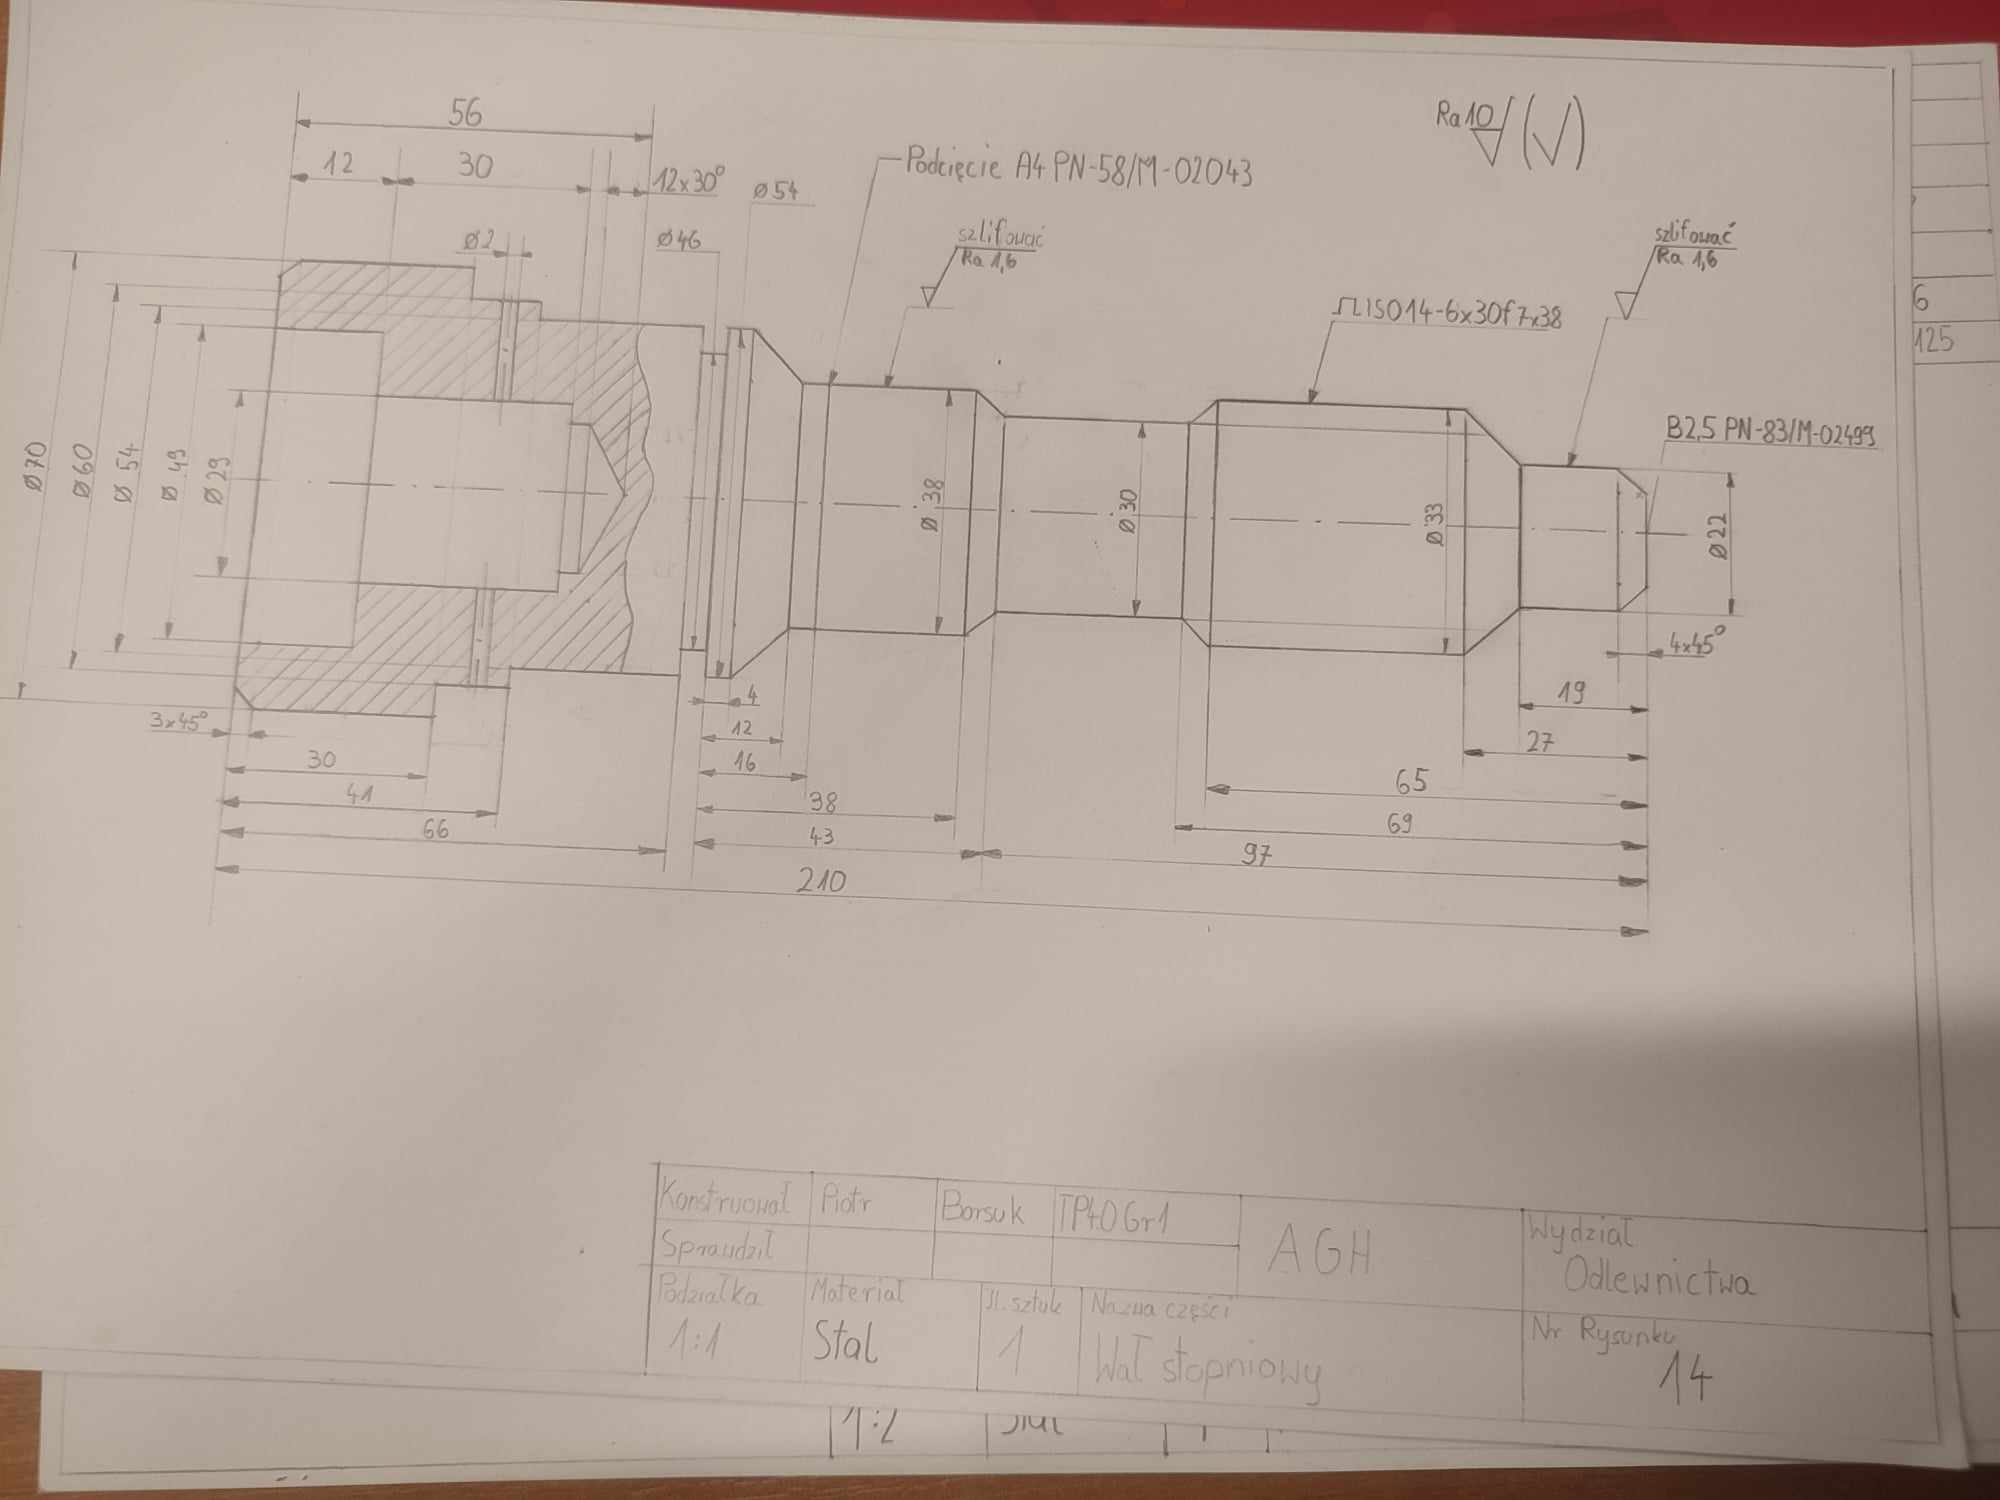 56
Ra 10
12
30
12x30°
Ø54
Podcięcie A4 PN-58/M-02043
Ø2
Ø46
szlifować
Ra 1,6
szlifować
Ra 1,6
ISO14-6x30f7x38
B2,5 PN-83/M-02499
6
125
Ø70
Ø60
Ø54
Ø49
Ø29
Ø38
Ø30
Ø33
Ø22
4x45°
3x45°
4
19
12
27
30
16
65
41
38
69
66
43
97
210
Konstruował Piotr Borsuk TP40Gr1
AGH
Wydział
Odlewnictwa
Sprawdził
Podziałka
1:1
Materiał
Stal
Il. sztuk
1
Nazwa części
Wał stopniowy
Nr Rysunku
14
1:2